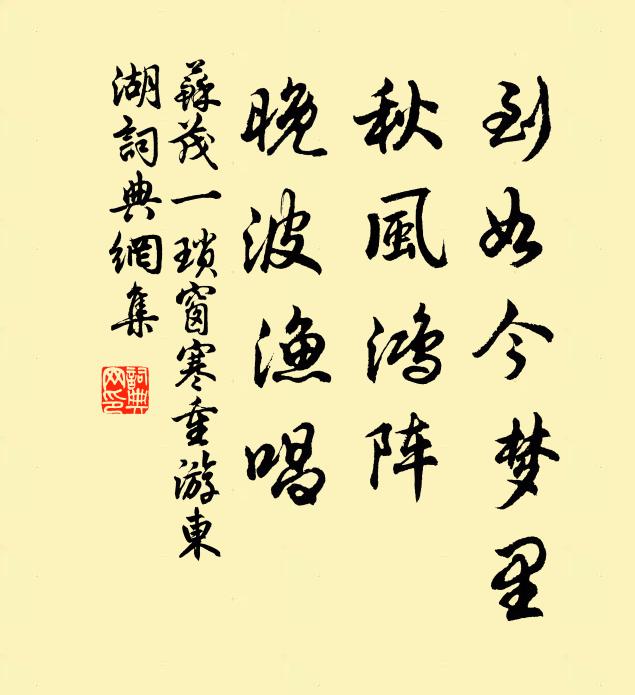 到如今梦里
秋風鸿阵
晚波渔唱
蘇茂一瑣窗寒重游東
湖詞典網集
詞典網印